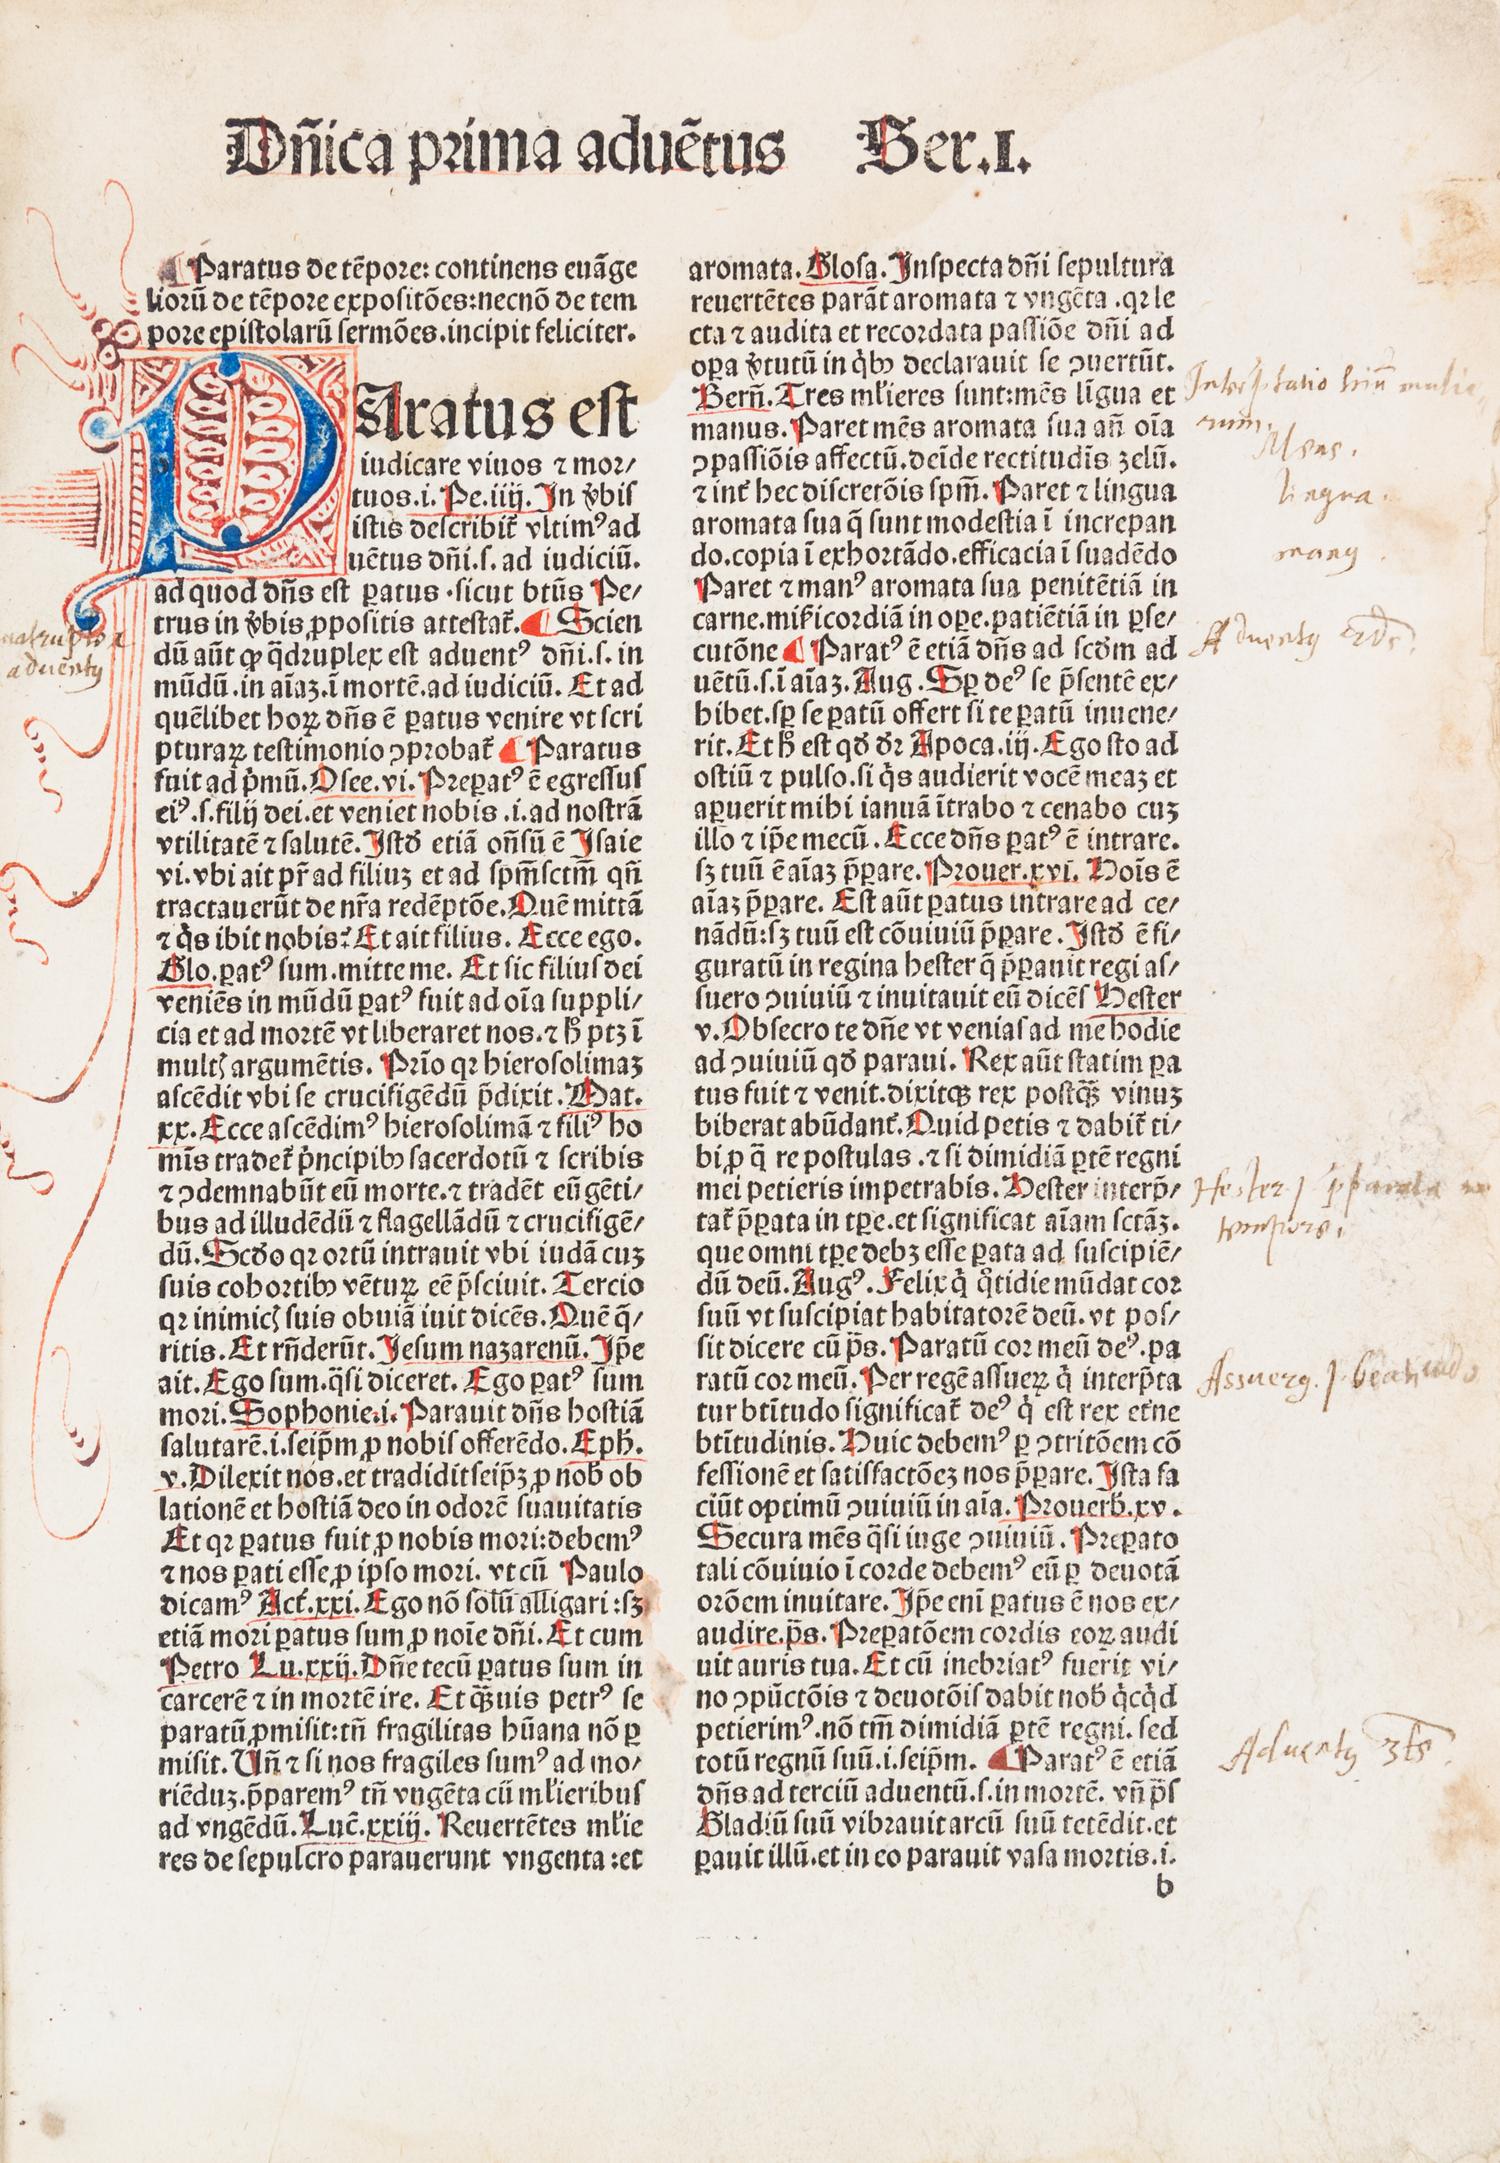 Dn̄ica prima aduētus Ser.I.
¶ Paratus de tēpore: continens euāge
liorū de tēpore expositōes: necnō de tem
pore epistolarū sermōes. incipit feliciter.
PAratus est
iudicare viuos ⁊ mor/
tuos. i. Pe. iiij. In v̄bis
istis describit̄ vltimꝰ ad
uētus dn̄i. s. ad iudiciū.
ad quod dn̄s est ꝑatus. sicut btū̄s Pe/
trus in v̄bis ꝓpositis attestat̄. ¶ Scien
dū aūt ꝙ q̄druplex est aduentꝰ dn̄i. s. in
mūdū. in aīaz. ī mortē. ad iudiciū. Et ad
quēlibet hoꝝ dn̄s ē ꝑatus venire vt scri
pturaꝝ testimonio ꝯprobat̄ ¶ Paratus
fuit ad p̄mū. Osee. vi. Preꝑatꝰ ē egressus
eiꝰ. s. filij dei. et veniet nobis. i. ad nostrā
vtilitatē ⁊ salutē. Istd̄ etiā on̄sū ē Isaie
vi. vbi ait pr̄ ad filiuz et ad spm̄ sctm̄ qn̄
tractauerūt de nr̄a redēptōe. Quē mittā
⁊ q̄s ibit nobis? Et ait filius. Ecce ego.
Glo. ꝑatꝰ sum. mitte me. Et sic filius dei
veniēs in mūdū ꝑatꝰ fuit ad oīa suppli/
cia et ad mortē vt liberaret nos. ⁊ h̄ ptz ī
multꝭ argumētis. Prīo qꝛ hierosolimaz
ascēdit vbi se crucifigēdū p̄dixit. Mat.
xx. Ecce ascēdimꝰ hierosolimā ⁊ filiꝰ ho
mīs tradet̄ p̄ncipibꝰ sacerdotū ⁊ scribis
⁊ ꝯdemnabūt eū morte. ⁊ tradēt eū gēti/
bus ad illudēdū ⁊ flagellādū ⁊ crucifigē/
dū. Scd̄o qꝛ ortū intrauit vbi iudā cuz
suis cohortibꝰ vētuꝝ eē p̄sciuit. Tercio
qꝛ inimicꝭ suis obuiā iuit dicēs. Quē q̄/
ritis. Et rn̄derūt. Jesum nazarenū. Ip̄e
ait. Ego sum. q̄si diceret. Ego ꝑatꝰ sum
mori. Sophonie. i. Parauit dn̄s hostiā
salutarē. i. seip̄m ꝓ nobis offerēdo. Eph̄.
v. Dilexit nos. et tradidit seip̄z ꝓ nob̄ ob
lationē et hostiā deo in odorē suauitatis
Et qꝛ ꝑatus fuit ꝓ nobis mori: debemꝰ
⁊ nos ꝑati esse ꝓ ipso mori. vt cū Paulo
dicamꝰ Act̄. xxi. Ego nō solū alligari: sz
etiā mori ꝑatus sum ꝓ noīe dn̄i. Et cum
Petro Lu. xxij. Dn̄e tecū ꝑatus sum in
carcerē ⁊ in mortē ire. Et q̄uis petrꝰ se
paratū ꝓmisit: tn̄ fragilitas hūana nō ꝑ
misit. Un̄ ⁊ si nos fragiles sumꝰ ad mo/
riēduz. p̄paremꝰ tn̄ vngēta cū ml̄ieribus
ad vngēdū. Luc̄. xxiij. Reuertētes ml̄ie
res de sepulcro parauerunt vngenta: et
aromata. Glosa. Inspecta dn̄i sepultura
reuertētes parāt aromata ⁊ vngēta. qꝛ le
cta ⁊ audita et recordata passiōe dn̄i ad
oꝑa v̄tutū in q̄bꝰ declarauit se ꝯuertūt.
Bern̄. Tres ml̄ieres sunt: mēs līgua et
manus. Paret mēs aromata sua an̄ oīa
ꝯpassiōis affectū. deīde rectitudīs zelū.
⁊ int̄ hec discretōis spm̄. Paret ⁊ lingua
aromata sua q̄ sunt modestia ī increpan
do. copia ī exhortādo. efficacia ī suadēdo
Paret ⁊ manꝰ aromata sua penitētiā in
carne. mīs̄icordiā in oꝑe. patiētiā in ꝑse/
cutōne ¶ Paratꝰ ē etiā dn̄s ad scd̄m ad
uētū. s. ī aīaz. Aug. Sꝑ deꝰ se p̄sentē ex/
hibet. sꝑ se ꝑatū offert si te ꝑatū inuene/
rit. Et h̄ est qd̄ dr̄ Apoca. iij. Ego sto ad
ostiū ⁊ pulso. si q̄s audierit vocē meaz et
aꝑuerit mihi ianuā ītrabo ⁊ cenabo cuz
illo ⁊ ip̄e mecū. Ecce dn̄s ꝑatꝰ ē intrare.
sz tuū ē aīaz p̄ꝑare. Prouer. xvi. Hoīs ē
aīaz p̄ꝑare. Est aūt ꝑatus intrare ad ce/
nādū: sz tuū est cōuiuiū p̄ꝑare. Istd̄ ē fi/
guratū in regina hester q̄ p̄ꝑauit regi as/
suero ꝯuiuiū ⁊ inuitauit eū dicēs Hester
v. Obsecro te dn̄e vt venias ad me hodie
ad ꝯuiuiū qd̄ paraui. Rex aūt statim ꝑa
tus fuit ⁊ venit. dixitqꝫ rex postq̄ vinuz
biberat abūdant̄. Quid petis ⁊ dabit̄ ti/
bi ꝓ q̄ re postulas. ⁊ si dimidiā ꝑtē regni
mei petieris impetrabis. Hester interp̄/
tat̄ p̄ꝑata in tꝑe. et significat aīam sctāz.
que omni tꝑe debz esse ꝑata ad suscipiē/
dū deū. Augꝰ. Felix q̄ q̊tidie mūdat cor
suū vt suscipiat habitatorē deū. vt pos/
sit dicere cū p̄s. Paratū cor meū deꝰ. pa
ratū cor meū. Per regē assueꝝ q̄ interp̄ta
tur btītudo significat̄ deꝰ q̄ est rex et̄ne
btītudinis. Huic debemꝰ ꝑ ꝯtritōem cō
fessionē et satisfactōez nos p̄ꝑare. Ista fa
ciūt optimū ꝯuiuiū in aīa. Prouerb̄. xv.
Secura mēs q̄si iuge ꝯuiuiū. Preꝑato
tali cōuiuio ī corde debemꝰ eū ꝑ deuotā
orōem inuitare. Ip̄e enī ꝑatus ē nos ex/
audire. p̄s. Preꝑatōem cordis eoꝝ audi
uit auris tua. Et cū inebriatꝰ fuerit vi/
no ꝯpūctōis ⁊ deuotōis dabit nob̄ q̄cq̄d
petierimꝰ. nō tm̄ dimidiā ꝑtē regni. sed
totū regnū suū. i. seip̄m. ¶ Paratꝰ ē etiā
dn̄s ad terciū aduentū. s. in mortē. vn̄ p̄s
Gladiū suū vibrauit arcū suū tetēdit. et
ꝑauit illū. et in eo parauit vasa mortis. i.
b
aduentꝰ
Interp̄tatio triū mulie
rum.
Mens.
lingua.
manꝰ.
Aduentꝰ 2dꝰ.
Hester
tempore.
Assuerꝰ.
Aduentꝰ 3tꝰ.